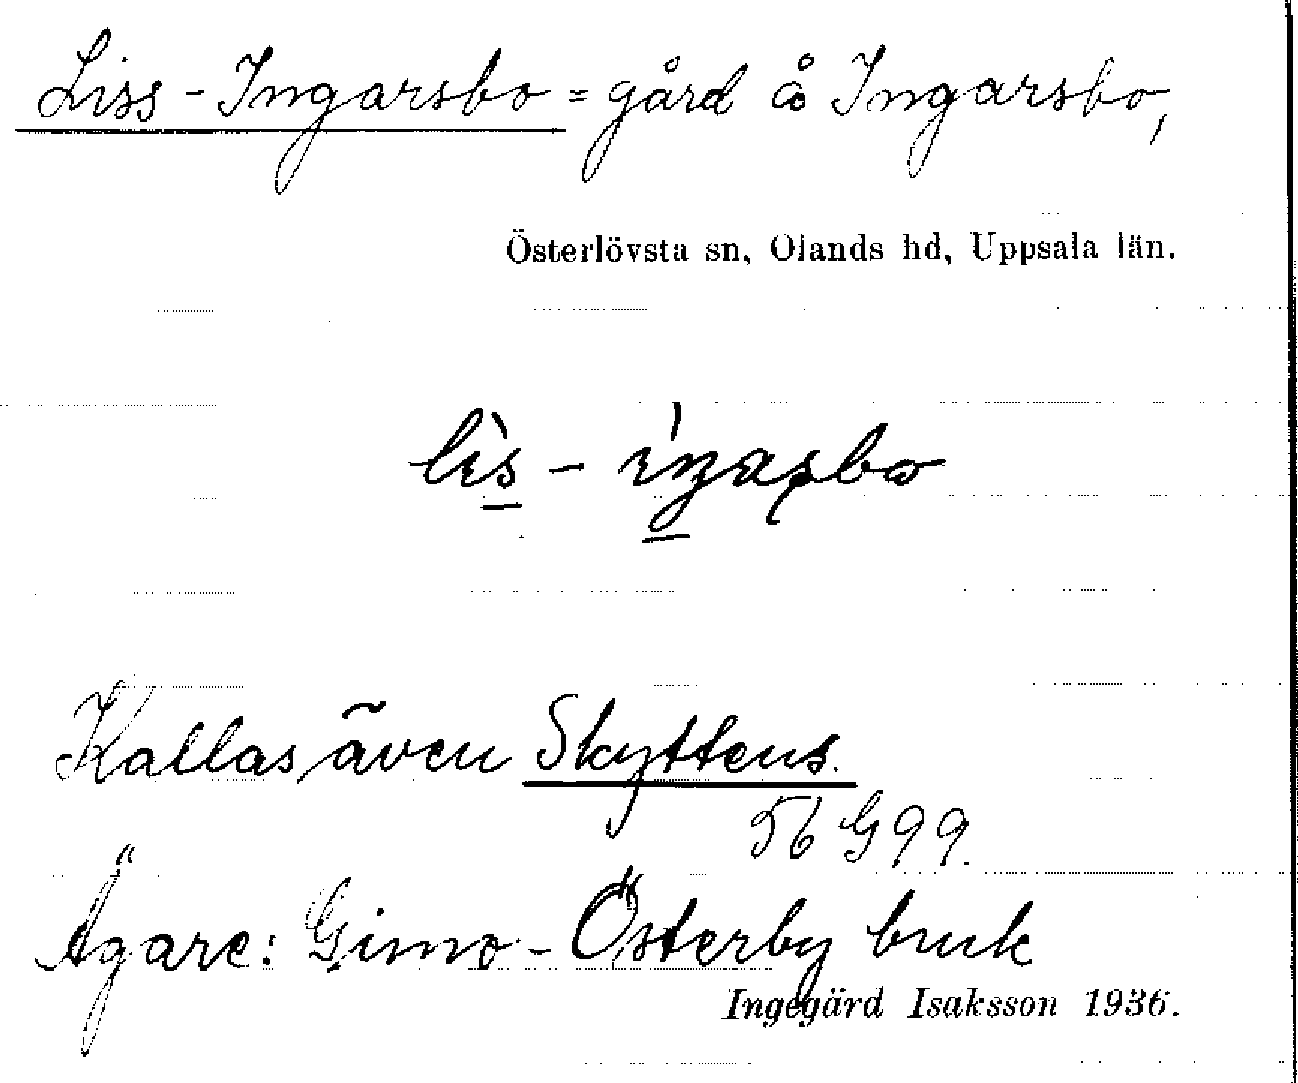 Liss-Ingarsbo = gård å Ingarsbo,
Österlövsta sn, Olands hd, Uppsala län.
Kallas även Skyttens.
56 G 99.
Ägare: Gimo-Österby bruk
Ingegärd Isaksson 1936.